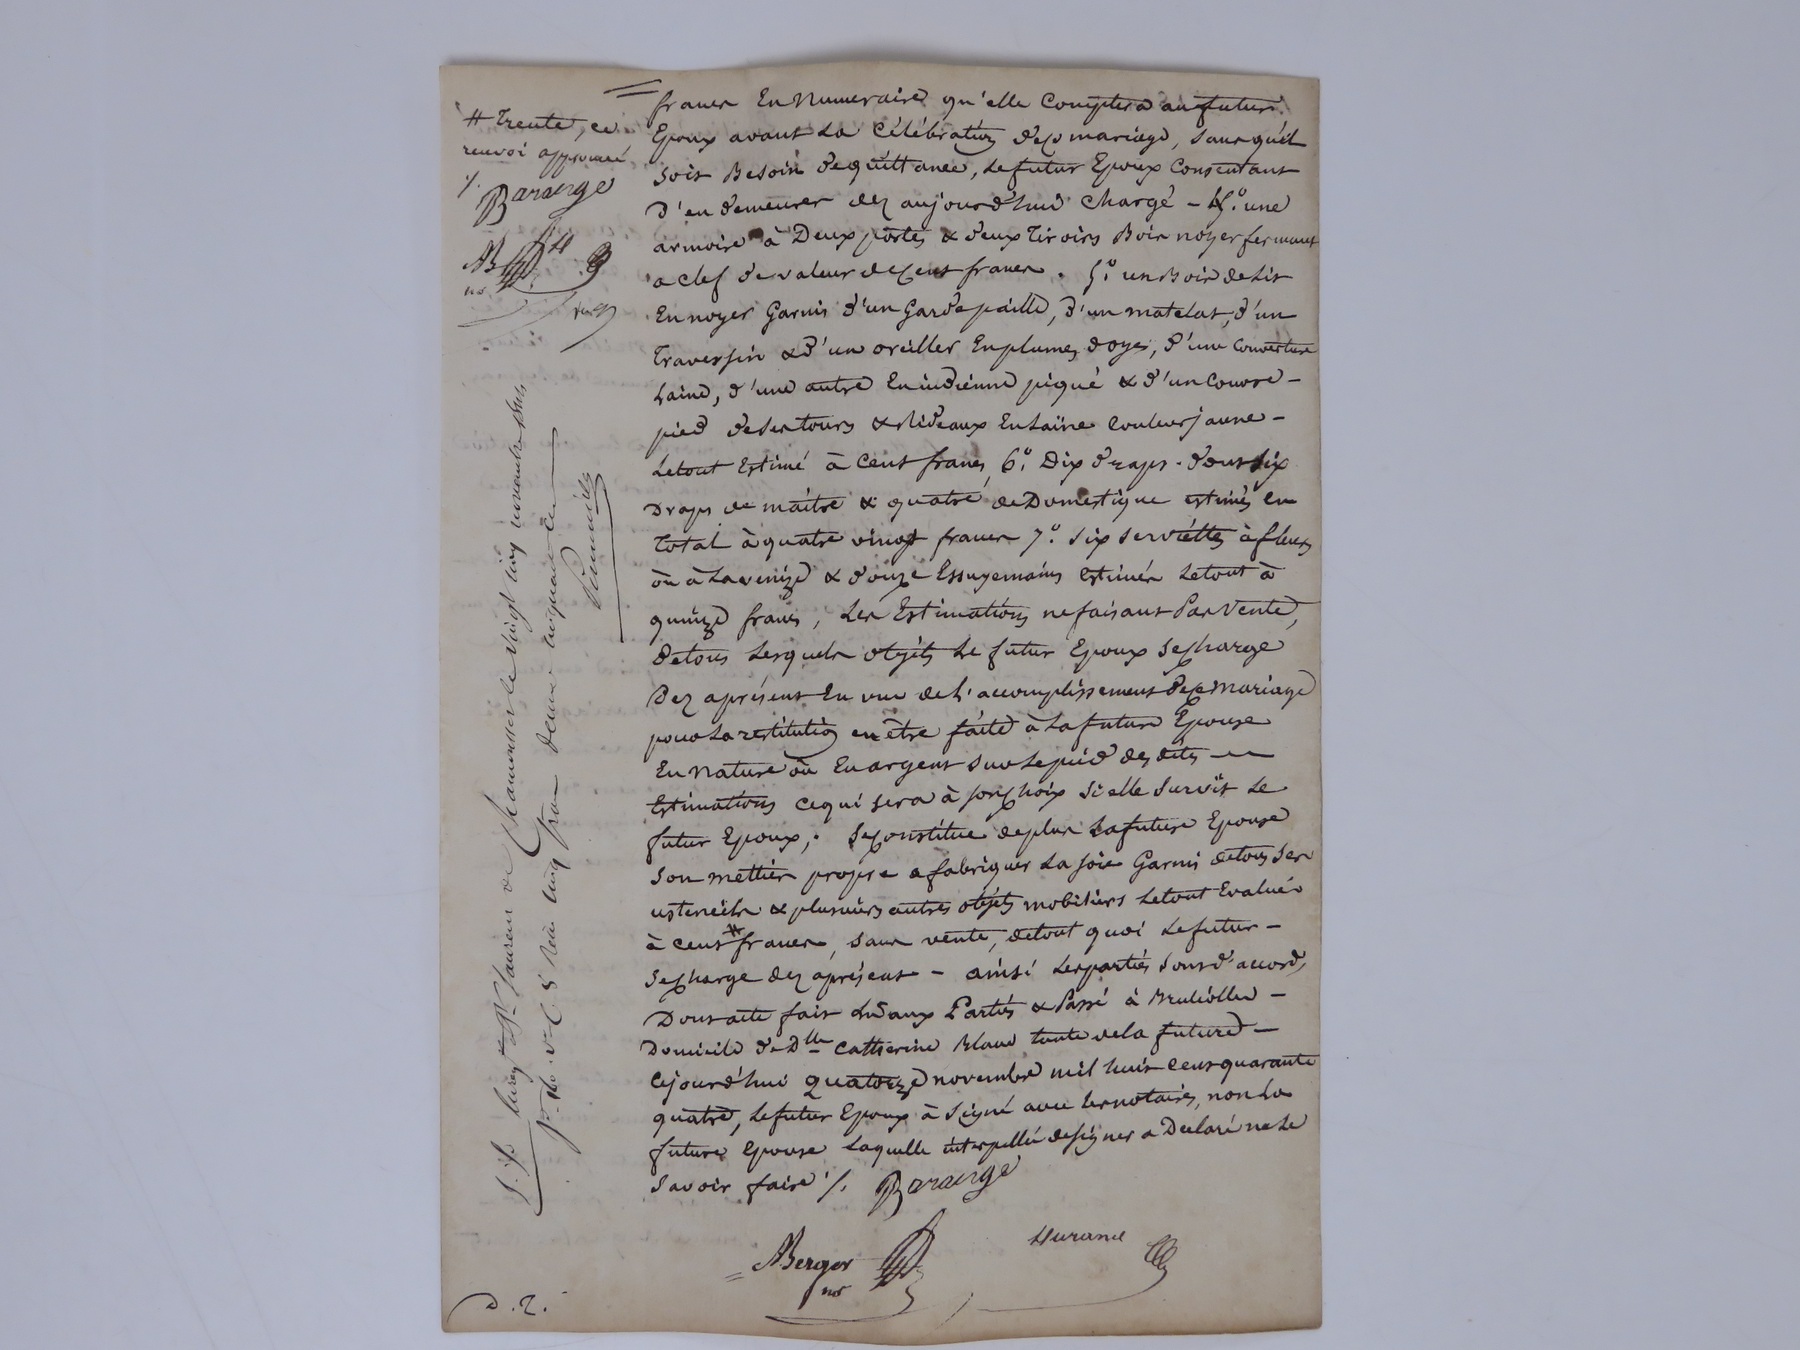 francs En Numeraire qu'elle Comptera au futur
Epoux avant La Célébration de ce mariage, sans qu'il
soit Besoin de quittance, Le futur Epoux Consentant
D'en demeurer dez aujourd'hui Chargé - 4.º une
armoire à Deux portes & deux Tiroirs Bois noyer fermant
a clef de valeur de Cent francs. 5.º un Bois de Lit
En noyer Garni d'un Gardepaille, d'un matelat, d'un
Traversin & d'un oreiller En plumes d'oyes, d'une Couverture
Laine, d'une autre En indienne piqué & d'un Couvre-
pied de ses tours & Rideaux En Laine Couleur jaune -
Le tout Estimé à Cent francs, 6.º Dix draps. dont six
Draps de maître & quatre de Domestique estimés en
Total à quatre vingt francs 7.º Six serviettes à fleurs
ou à La venize & douze Essuyemains estimés Le tout à
quinze francs, Les Estimations ne faisant Pas Vente,
de tous Lesquels objets Le futur Epoux se Charge
Dez aprésent En vue de L'accomplissement de ce Mariage
pour La restitution en être faite à La future Epouse
En Nature ou En argent sur Le pied des dites
Estimations ce qui sera à son Choix si elle survit Le
futur Epoux; se Constitue de plus La future Epouse
son mettier propre a fabriquer La soie Garni de tous ses
ustencils & plusieurs autres objets mobiliers Le tout Evalué
à cent # francs, sans vente, de tout quoi Le futur -
se Charge dez aprésent - ainsi Les parties sont d'accord,
Dont acte fait Lu aux Parties & Passé à
Domicile de Dlle Catherine Blanc tante de la future -
Cejourd'hui quatorze novembre mil huit cent quarante
quatre, Le futur Epoux à Signé avec Les notaires, non La
future Epouse Laquelle interpellée de signer a Declaré ne Le
savoir faire ./. Barange
ABerger
nre
Durand
# Trente, ce
renvoi approuvé
./. Barange
AB
nre
St Sauveur de Le vingt cinq novembre
cinq fran
D. 2.